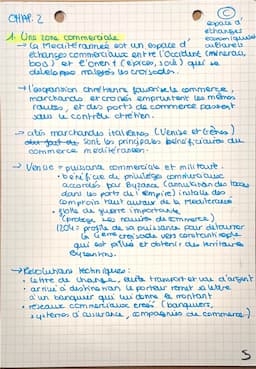 CHAP. 2
C
espace d'
échanges
économiques
culturels
1. Une zone commerciale
→ La Méditerranée est un espace d'
échanges commerciaux entre l'Occident (minerais,
bois) et l'Orient (épices, soie) qui se
développe malgré les croisades.
→ l'expansion chrétienne favorise le commerce,
marchands et croisés empruntent les mêmes
routes, et des ports de commerce passent
sous le contrôle chrétien.
→ cités marchandes italiennes (Venise et Gênes)
sont les principales bénéficiaires du
commerce méditerranéen.
→ Venise = puissance commerciale et militaire.
• bénéficie de privilèges commerciaux
accordés par Byzance (annulation des taxes
dans les ports de l'empire) installe des
comptoirs tout autour de la Méditerranée
• flotte de guerre importante
(protège les navires de commerce)
1204: profite de sa puissance pour détourner
la 4ème croisade vers Constantinople
qui est pillée et obtenir des territoires
byzantins.
→ Révolutions techniques:
• lettre de change, évite transport et vol d'argent
• arrivé à destination le porteur remet sa lettre
à un banquier qui lui donne le montant
• réseaux commerciaux créés (banquiers,
systèmes d'assurance, compagnies de commerce)
5